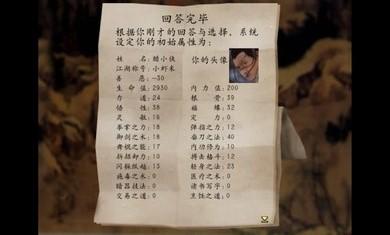 回答完毕
根据你刚才的回答与选择, 系统
设定你的初始属性为:
姓 名:醋小侠
你的头像
江湖称号:小虾米
善 恶:-30
生命值:2930 内力值:200
力 道:24 根 骨:39
悟 性:16 福 缘:32
灵 敏:38 定 力:0
拳掌之力:18 弹指之力:12
御剑之术:18 奔刀之法:40
奔腿之能:17 内功修为:10
拆招卸力:10 搏击格斗:12
闪躲纵跃:13 轻身之法:23
施毒之术:0 医疗之术:0
暗器技法:0 读书写字:0
交易之道:0 烹饪之道:0